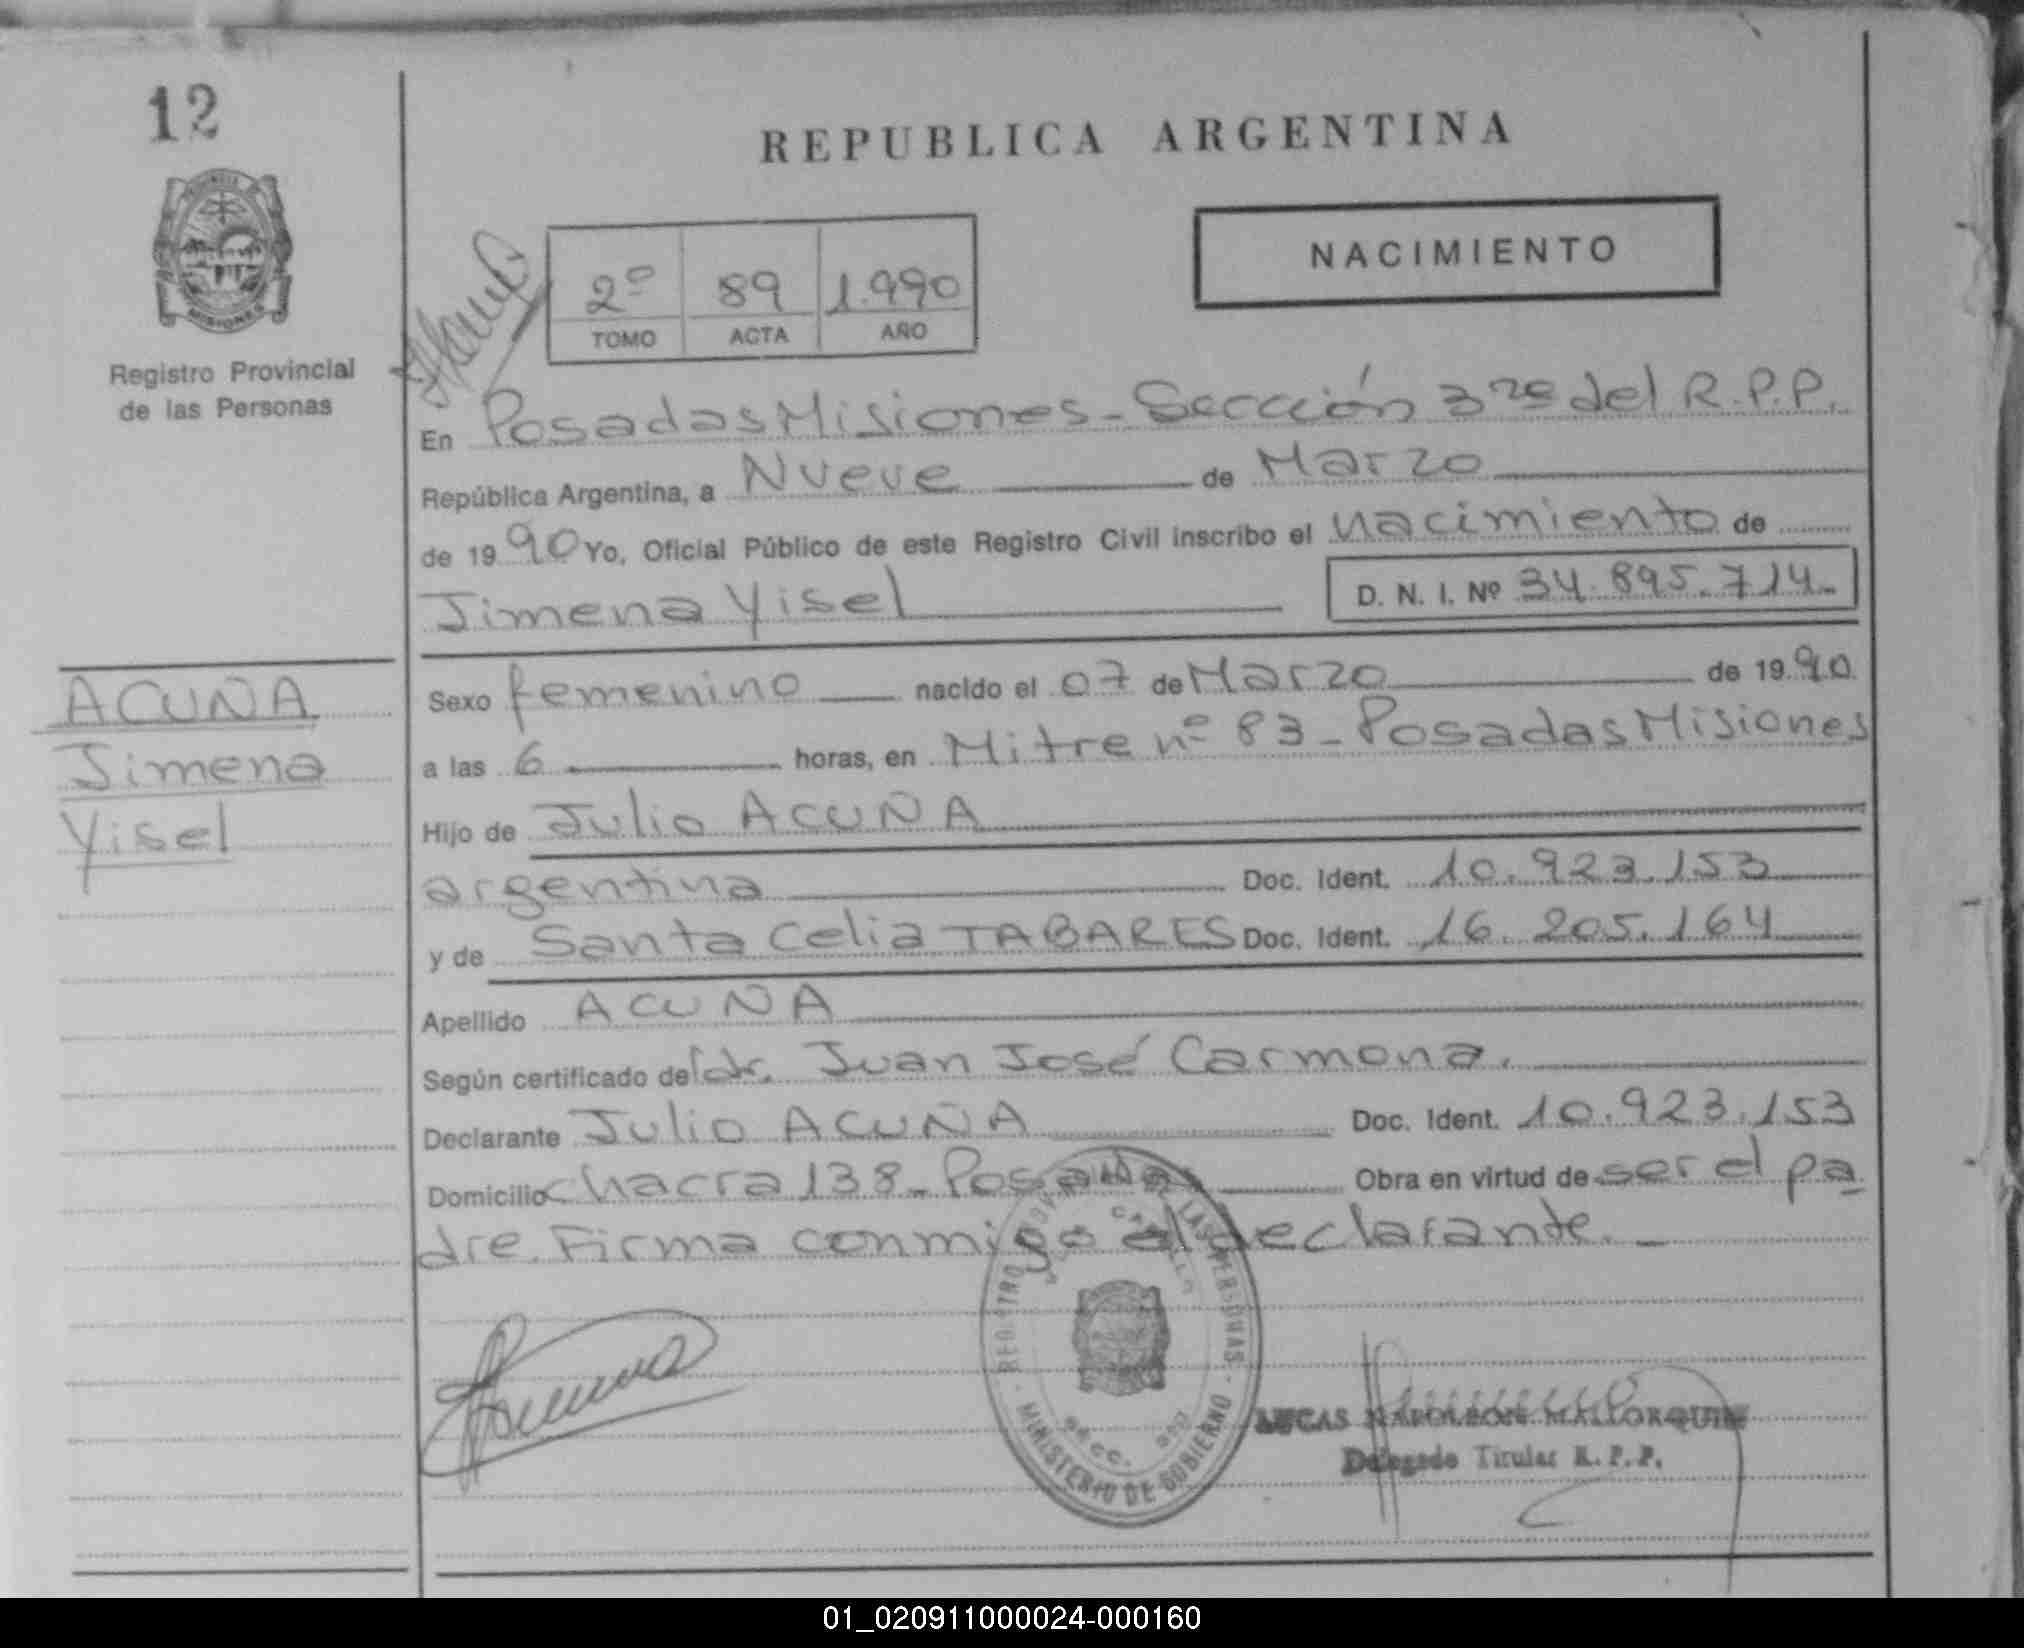 12
REPUBLICA ARGENTINA
PROVINCIA
MISIONES
NACIMIENTO
2º 89 1.990
TOMO ACTA AÑO
Registro Provincial
de las Personas
En Posadas Misiones - Sección 3ra del R.P.P.
República Argentina, a Nueve de Marzo
de 1990 Yo, Oficial Público de este Registro Civil inscribo el nacimiento de
Jimena Yisel
D. N. I. Nº 34.895.714.-
ACUÑA
Jimena
Yisel
Sexo femenino nacido el 07 de Marzo de 1990
a las 6 horas, en Mitre nº 83 - Posadas Misiones
Hijo de Julio ACUÑA
argentina Doc. Ident. 10.923.153
y de Santa Celia TABARES Doc. Ident. 16.205.164
Apellido ACUÑA
Según certificado del dr. Juan José Carmona.
Declarante Julio ACUÑA Doc. Ident. 10.923.153
Domicilio chacra 138 - Posadas Obra en virtud de ser el pa
dre. Firma conmigo el declarante. -
REGISTRO PROV. DE LAS PERSONAS
MINISTERIO DE GOBIERNO
LUCAS NAPOLEON MALLORQUIN
Delegado Titular R. P. P.
01_020911000024-000160